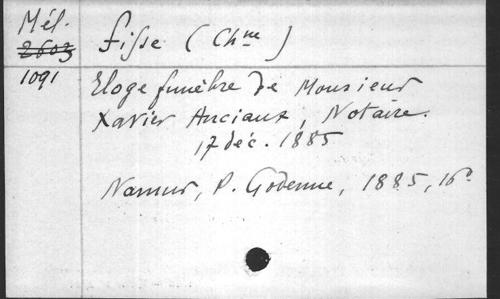 Mél.
2603 Fisse (Chne)
1091 Eloge funèbre de Monsieur
Xavier Anciaux, Notaire.
17 déc. 1885
Namur, P. Godenne, 1885, 16o